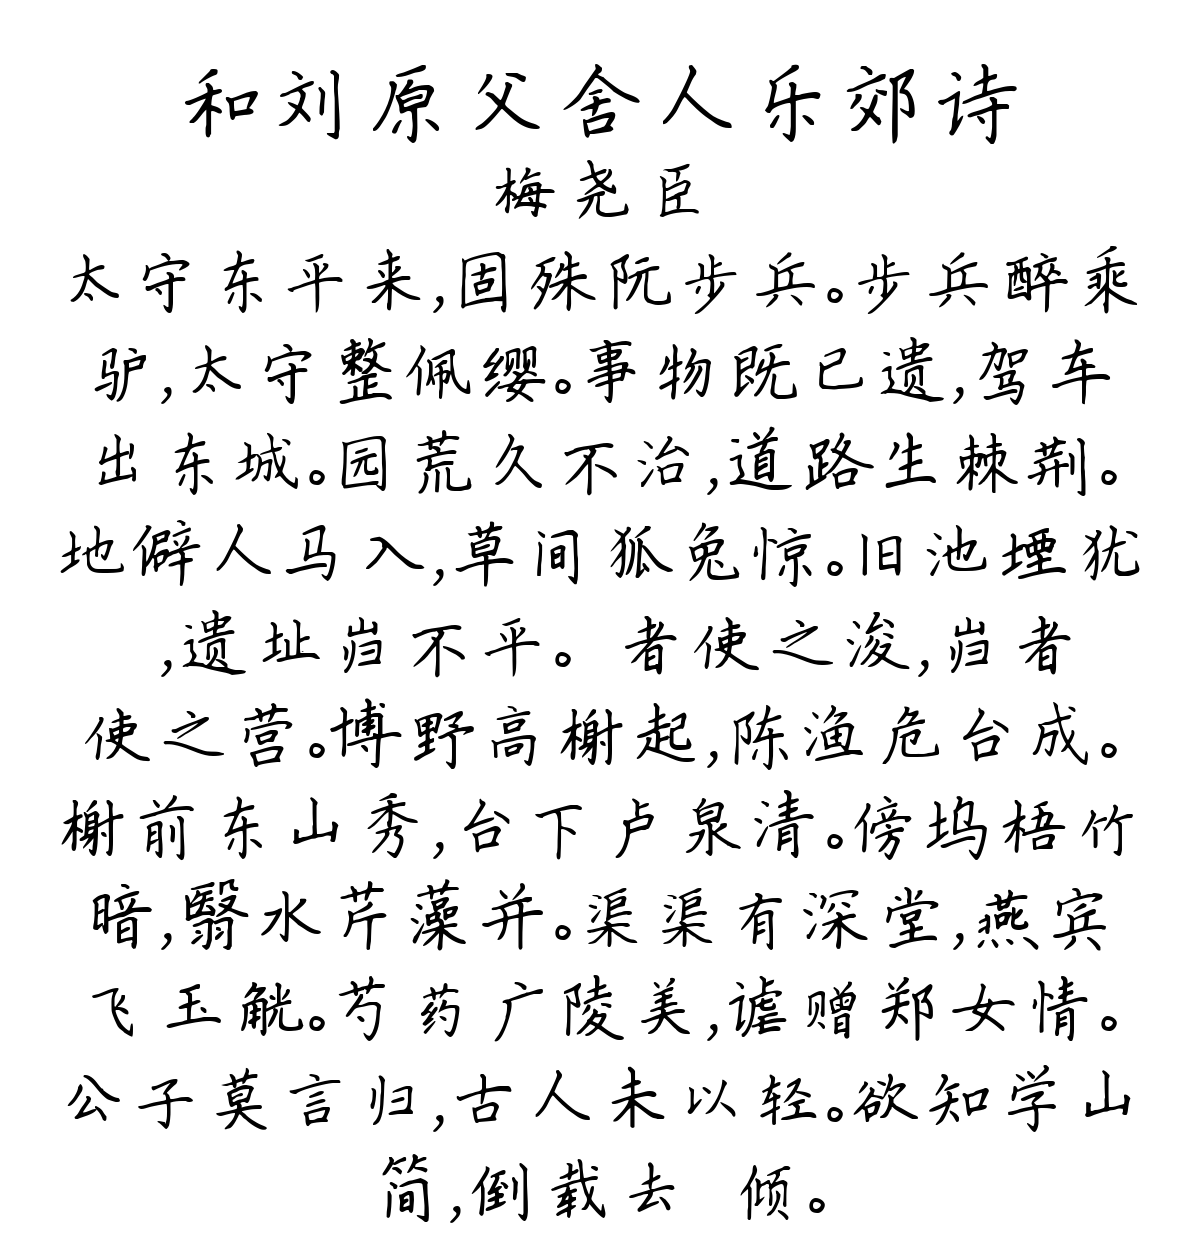 和刘原父舍人乐郊诗
梅尧臣
太守东平来,固殊阮步兵。步兵醉乘
驴,太守整佩缨。事物既已遗,驾车
出东城。园荒久不治,道路生棘荆。
地僻人马入,草间狐兔惊。旧池堙犹
,遗址岿不平。 者使之浚,岿者
使之营。博野高榭起,陈渔危台成。
榭前东山秀,台下卢泉清。傍坞梧竹
暗,翳水芹藻并。渠渠有深堂,燕宾
飞玉觥。芍药广陵美,谑赠郑女情。
公子莫言归,古人未以轻。欲知学山
简,倒载去 倾。